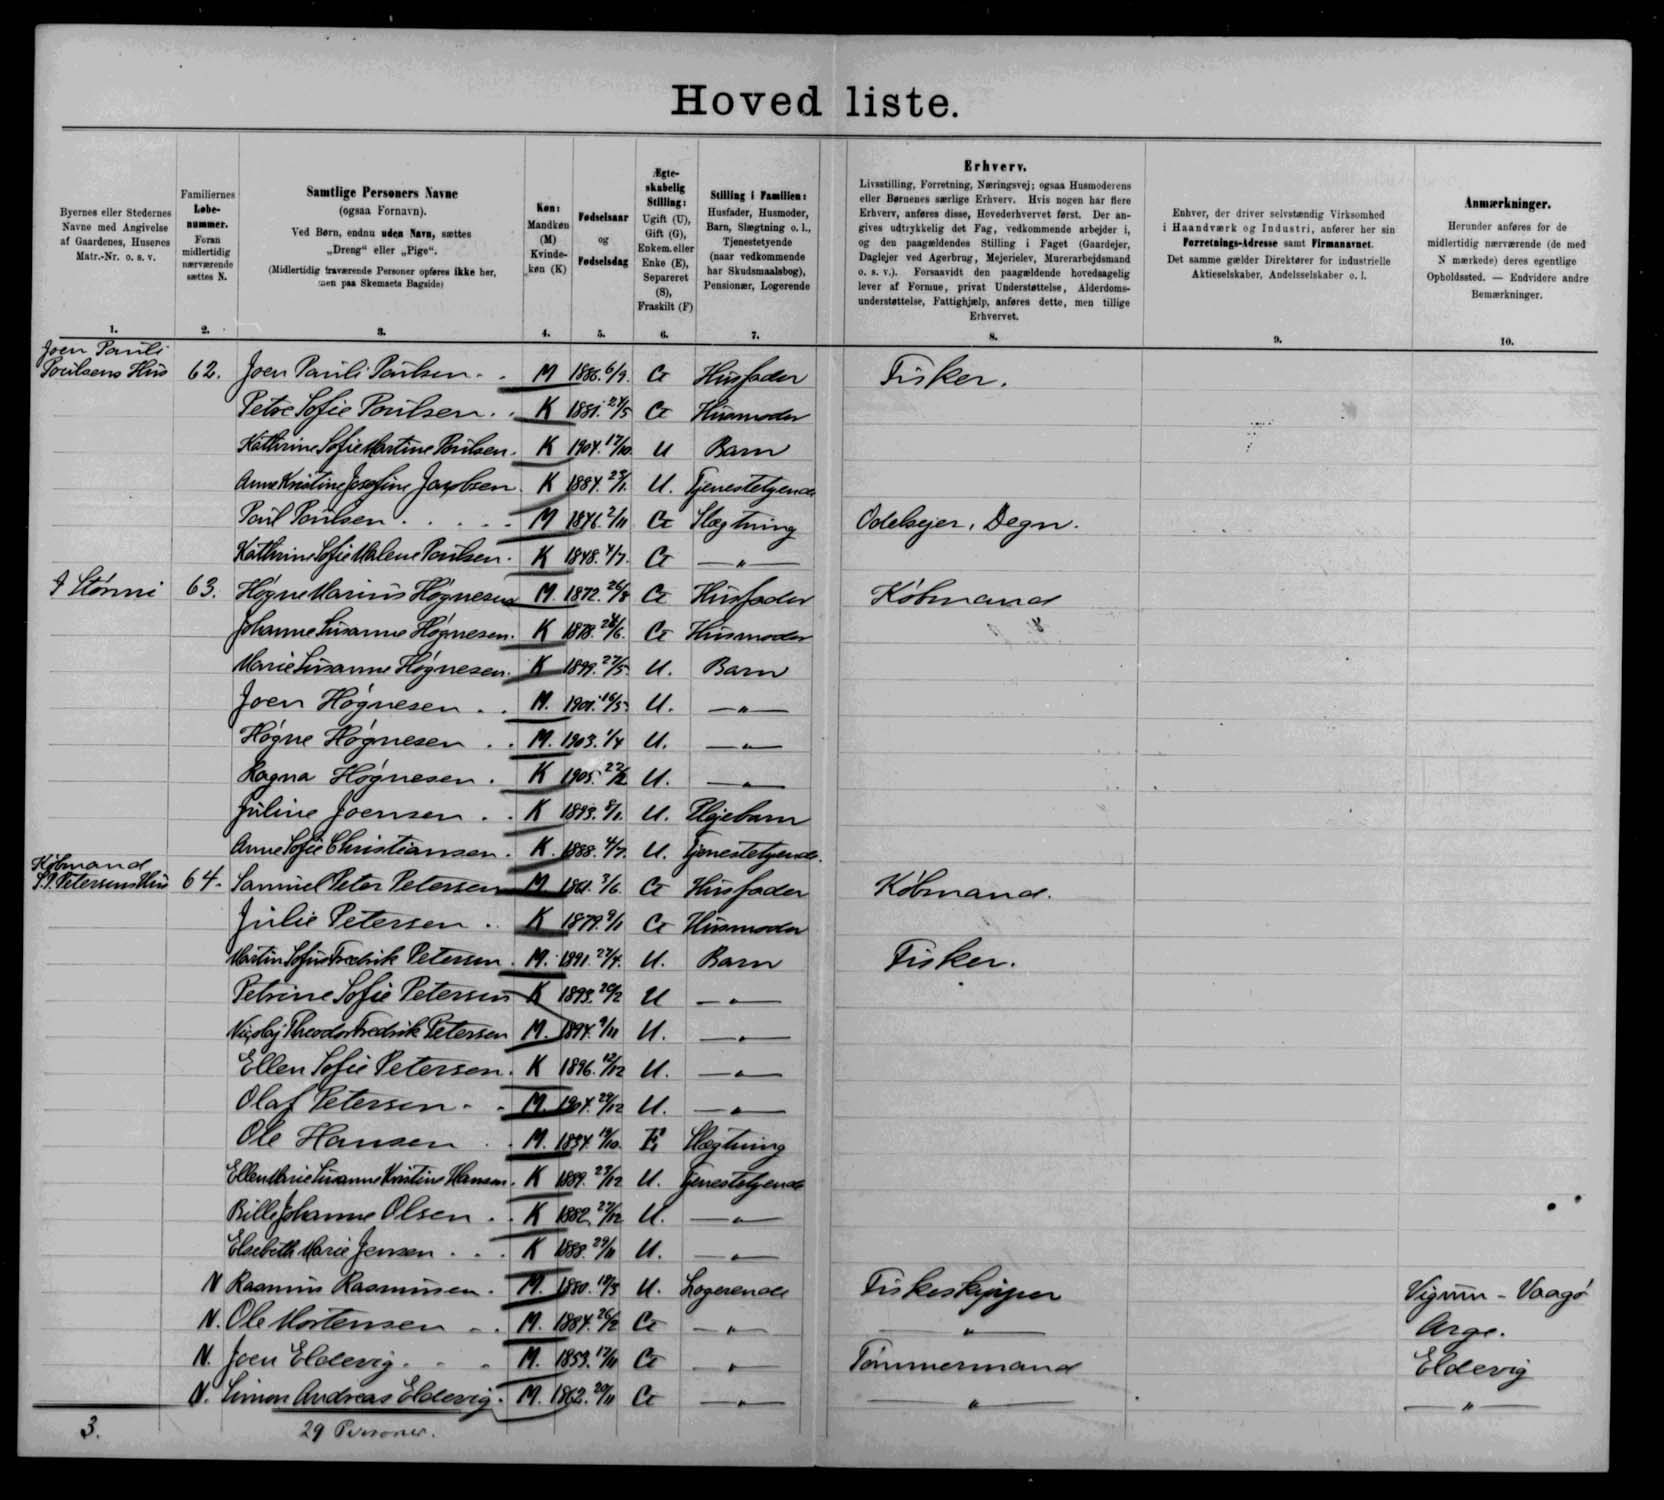 Hoved liste.
Byernes eller Stedernes Navne med Angivelse af Gaardenes, Husenes Matr.-Nr. o. s. v.
Familiernes Løbenummer. Foran midlertidig nærværende sættes N.
Samtlige Personers Navne
(ogsaa Fornavn).
Ved Børn, endnu uden Navn, sættes „Dreng" eller „Pige".
(Midlertidig fraværende Personer opføres ikke her, men paa Skemaets Bagside)
Køn: Mandkøn (M) Kvindekøn (K)
Fødselsaar og Fødselsdag
Ægteskabelig Stilling: Ugift (U), Gift (G), Enkem. eller Enke (E), Separeret (S), Fraskilt (F)
Stilling i Familien: Husfader, Husmoder, Barn, Slægtning o. l., Tjenestetyende (naar vedkommende har Skudsmaalsbog), Pensionær, Logerende
Erhverv.
Livsstilling, Forretning, Næringsvej; ogsaa Husmoderens eller Børnenes særlige Erhverv. Hvis nogen har flere Erhverv, anføres disse, Hovederhvervet først. Der angives udtrykkelig det Fag, vedkommende arbejder i, og den paagældendes Stilling i Faget (Gaardejer, Daglejer ved Agerbrug, Mejerielev, Murerarbejdsmand o. s. v.). Forsaavidt den paagældende hovedsagelig lever af Formue, privat Understøttelse, Alderdomsunderstøttelse, Fattighjælp, anføres dette, men tillige Erhvervet.
Enhver, der driver selvstændig Virksomhed i Haandværk og Industri, anfører her sin Forretnings-Adresse samt Firmanavnet. Det samme gælder Direktører for industrielle Aktieselskaber, Andelsselskaber o. l.
Anmærkninger.
Herunder anføres for de midlertidig nærværende (de med N mærkede) deres egentlige Opholdssted. — Endvidere andre Bemærkninger.
1. 2. 3. 4. 5. 6. 7. 8. 9. 10.
Joen Pauli
Poulsens Hus 62. Joen Pauli Poulsen . . M 1886. 6/9. G Husfader Fisker.
Petre Sofie Poulsen . . K 1881. 27/5 G Husmoder
Kathrine Sofie Martine Poulsen. K 1904. 17/10. U Barn
Anne Kristine Josefine Jacobsen. K 1884. 23/1. U. Tjenestetyende
Poul Poulsen . . . . . M 1846. 2/11 G Slægtning Odelsejer, Degn.
Kathrine Sofie Malene Poulsen. K 1848. 4/7. G — „ —
I Stórmi 63. Høgne Marius Høgnesen M. 1872. 26/8 G Husfader Købmand
Johanne Susanne Høgnesen. K 1878. 28/6. G Husmoder
Marie Susanne Høgnesen. K 1899. 27/5. U. Barn
Joen Høgnesen . . M. 1901. 16/5. U. — „ —
Høgne Høgnesen . . M. 1903. 1/4 U. — „ —
Ragna Høgnesen . K 1905. 22/2 U. — „ —
Juline Joensen . . K 1893. 8/1. U. Plejebarn
Anne Sofie Christiansen . K. 1888. 4/7. U. Tjenestetyende.
Købmand
S.P. Petersens Hus 64. Samuel Peter Petersen M 1861. 3/6. G Husfader Købmand.
Julie Petersen . . K 1879. 9/1 G Husmoder
Martin Sofus Fredrik Petersen . M. 1891. 27/4. U. Barn Fisker.
Petrine Sofie Petersen K 1893. 20/2 U — „ —
Nicolaj Theodor Fredrik Petersen M. 1894. 9/11 U. — „ —
Ellen Sofie Petersen . K 1896. 12/12 U. — „ —
Olaf Petersen . . M. 1904. 29/12 U. — „ —
Ole Hansen . . M. 1834. 19/10. E Slægtning
Ellen Marie Susanne Kristine Hansen . K 1889. 23/12 U. Tjenestetyende
Bille Johanne Olsen . . K 1882. 27/12 U. — „ —
Elsebeth Marie Jensen . . . K 1888. 29/11 U. — „ —
N Rasmus Rasmussen . M. 1880. 19/3 U. Logerende Fiskeskipper Vigum - Vaagø
N. Ole Mortensen . . M. 1884. 26/2 G — „ — — „ — Arge.
N. Joen Eldevig . . . M. 1859. 17/11 G — „ — Tømmermand Eldevig
N. Simon Andreas Eldevig . M. 1862. 20/11 G — „ — — „ — — „ —
3. 29 Personer.